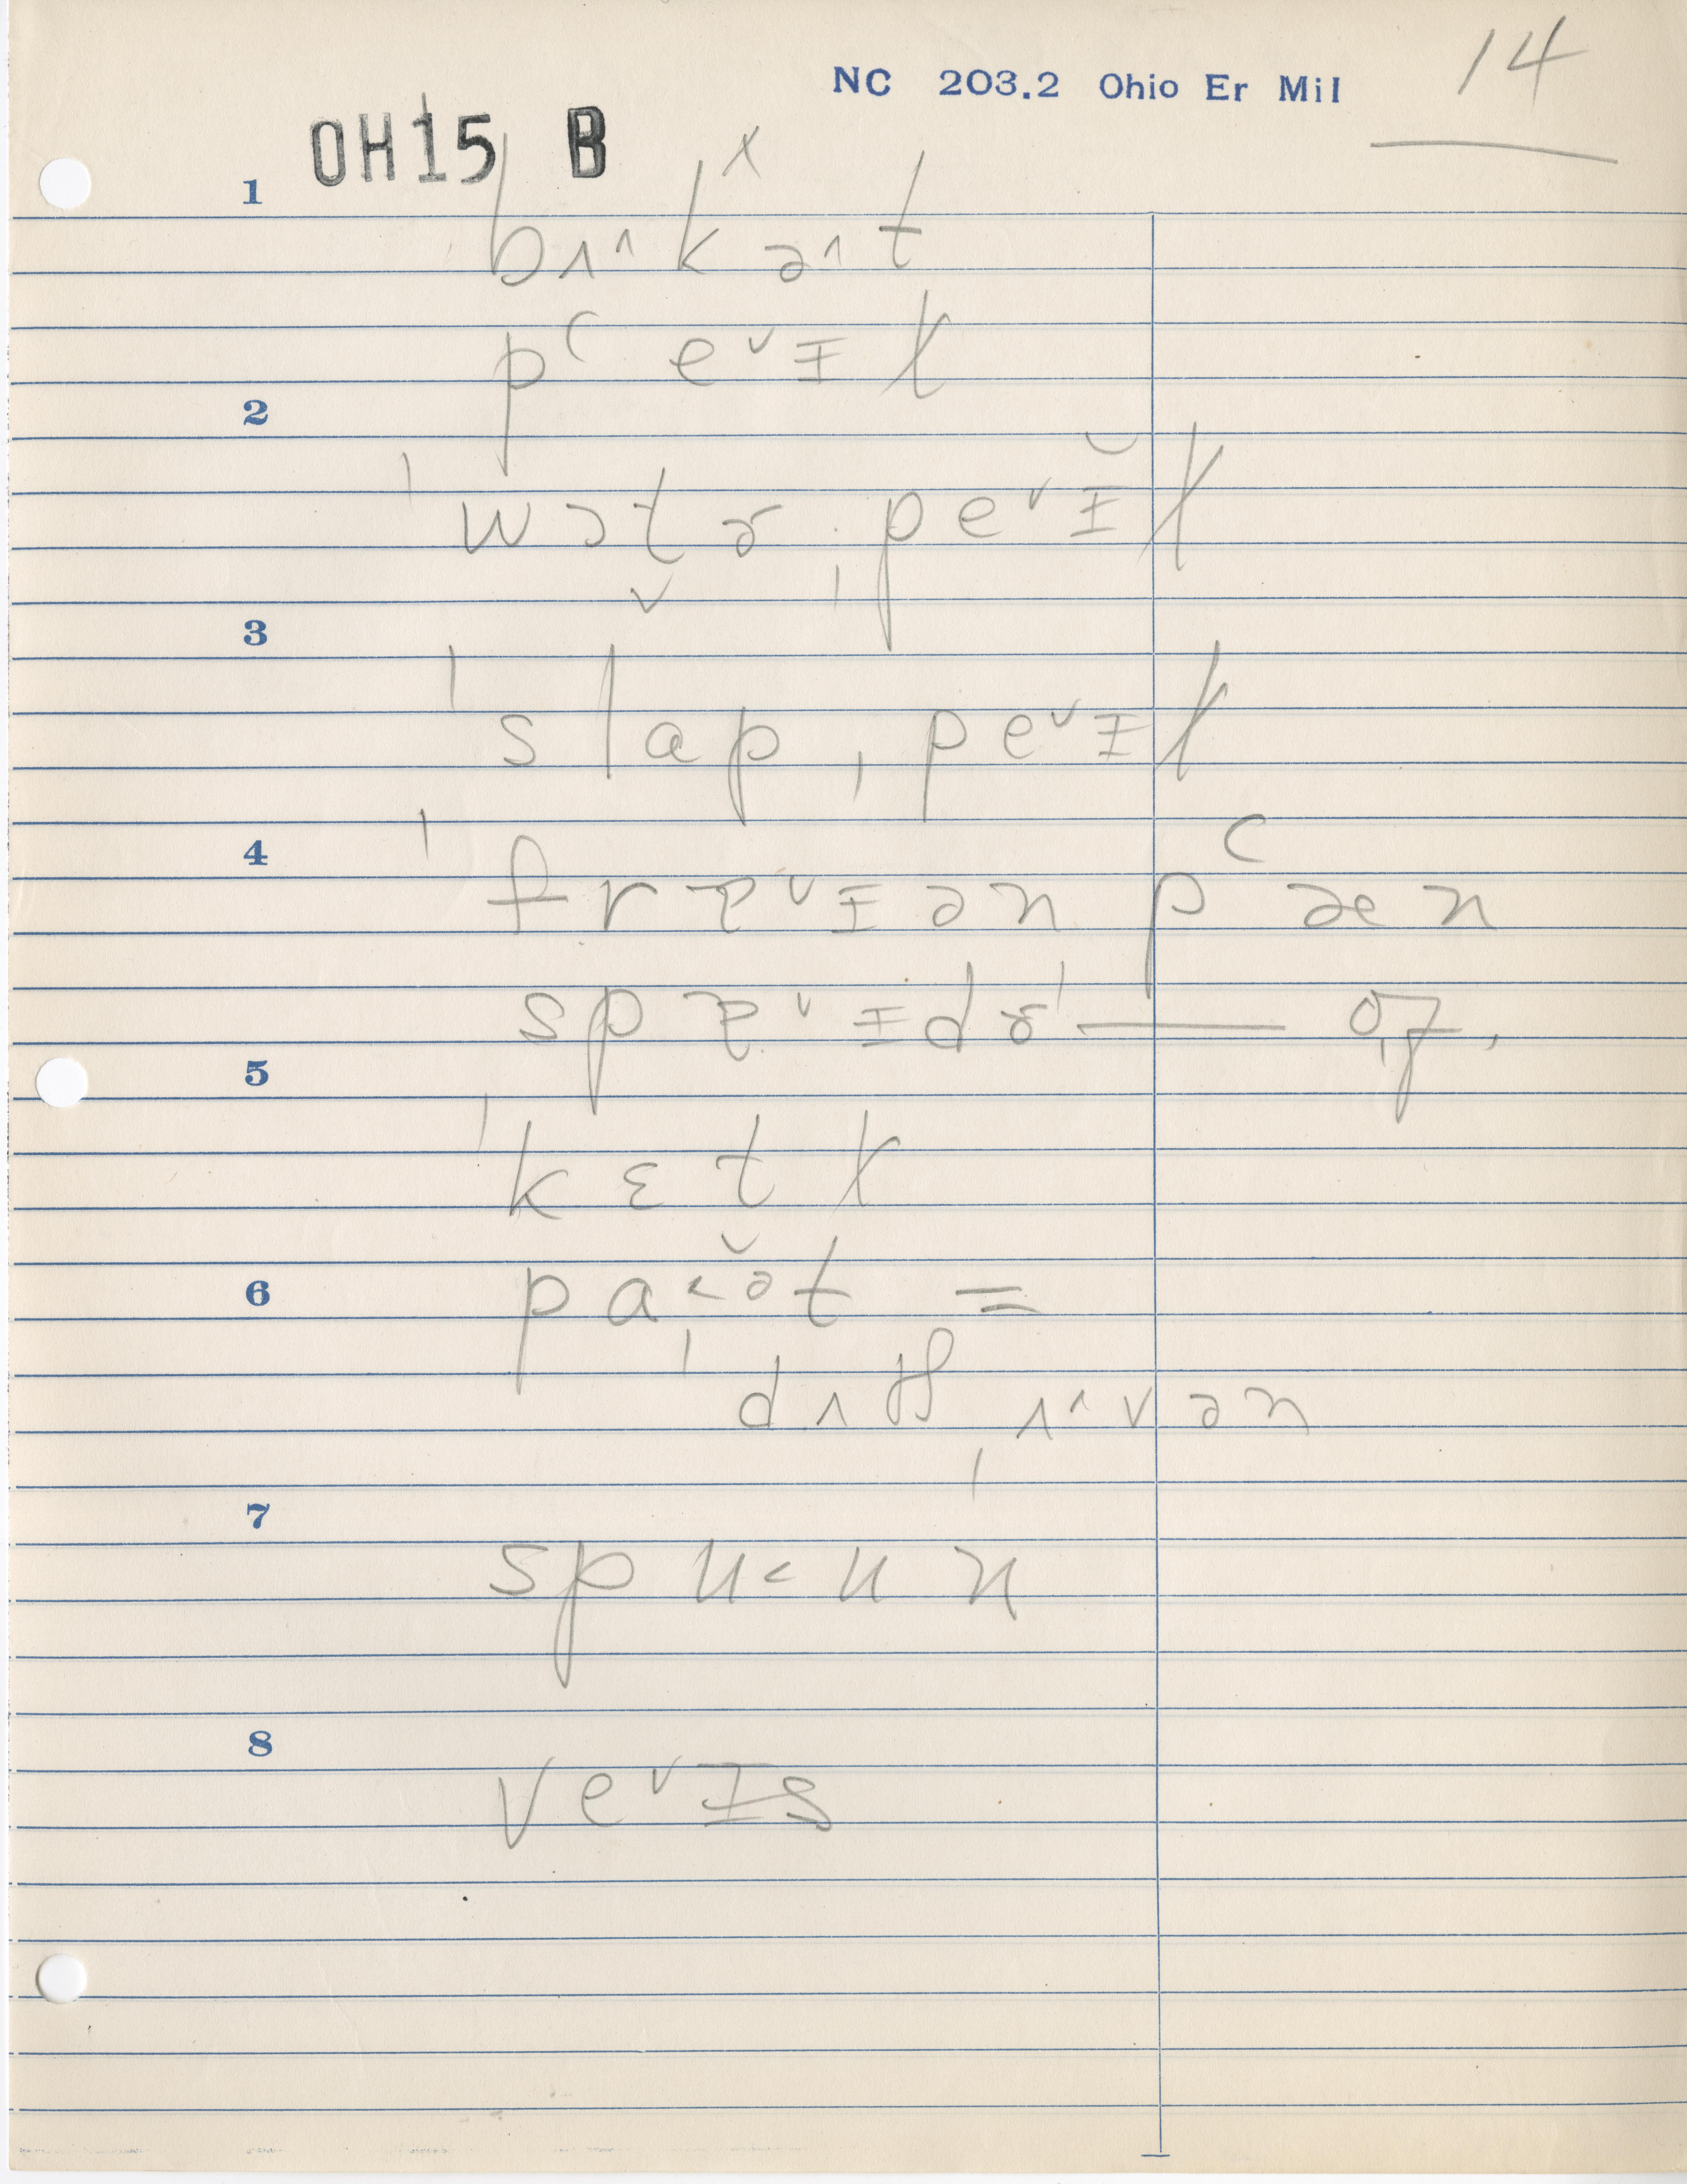 NC 203.2 Ohio Er Mil 14
OH15 B
1 ˈbʌ^kə^t ×
pʻeᵛɪɫ
2 ˈwɔt̬ɚˌpeᵛɪ̆ɫ
3 ˈslapˌpeᵛɪɫ
4 ˈfrɐᵛɪən pʻæn
spɐᵛɪdɚˈ—
5 ˈkɛtɫ
6 paˑə̆t =
ˈdʌʧˌʌ^vən
7 spu˂un
8 veᵛɪs